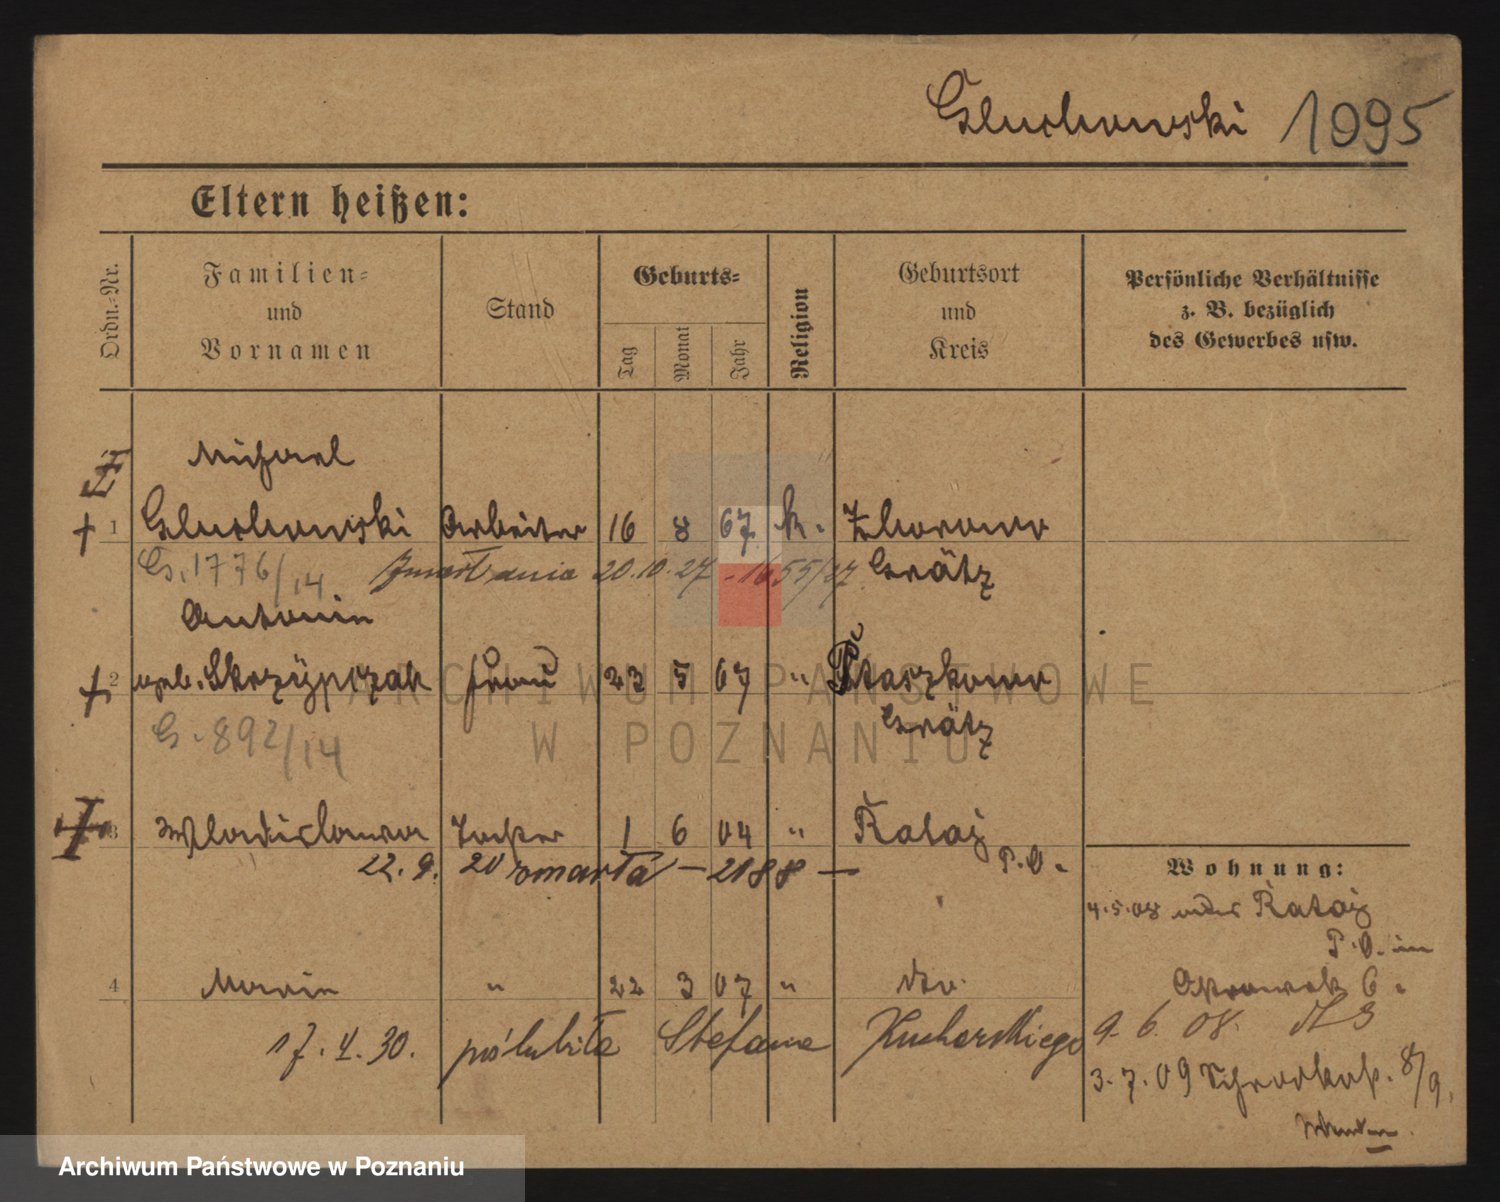 Gluchowski 1095
Eltern heißen:
Ordn.-Nr.
Familien-
und
Vornamen
Stand
Geburts-
Tag
Monat
Jahr
Religion
Geburtsort
und
Kreis
Persönliche Verhältnisse
z. B. bezüglich
des Gewerbes usw.
Michael
1 Gluchowski Arbeiter 16 8 67 k. Zborowo
G. 1776/14 Zmarł dnia 20.10.27 - 1655/27 Grätz
Antonie
2 geb. Skrzypczak Frau 23 5 67 " Ptaszkowo
G. 892/14 Grätz
3 Wladislawa Tochter 1 6 04 " Rataj
22. 9. 20 zmarła - 2188 - P. O.
Wohnung:
4.5.08 Rataj
P. O. im
4 Marie " 22 3 07 " dto. 6.
17. 4. 30. poślubiła Stefana Kucharskiego 9. 6. 08. 3
3. 7. 09 Schrodkaſtr. 8/9.
ARCHIWUM PAŃSTWOWE
W POZNANIU
Archiwum Państwowe w Poznaniu